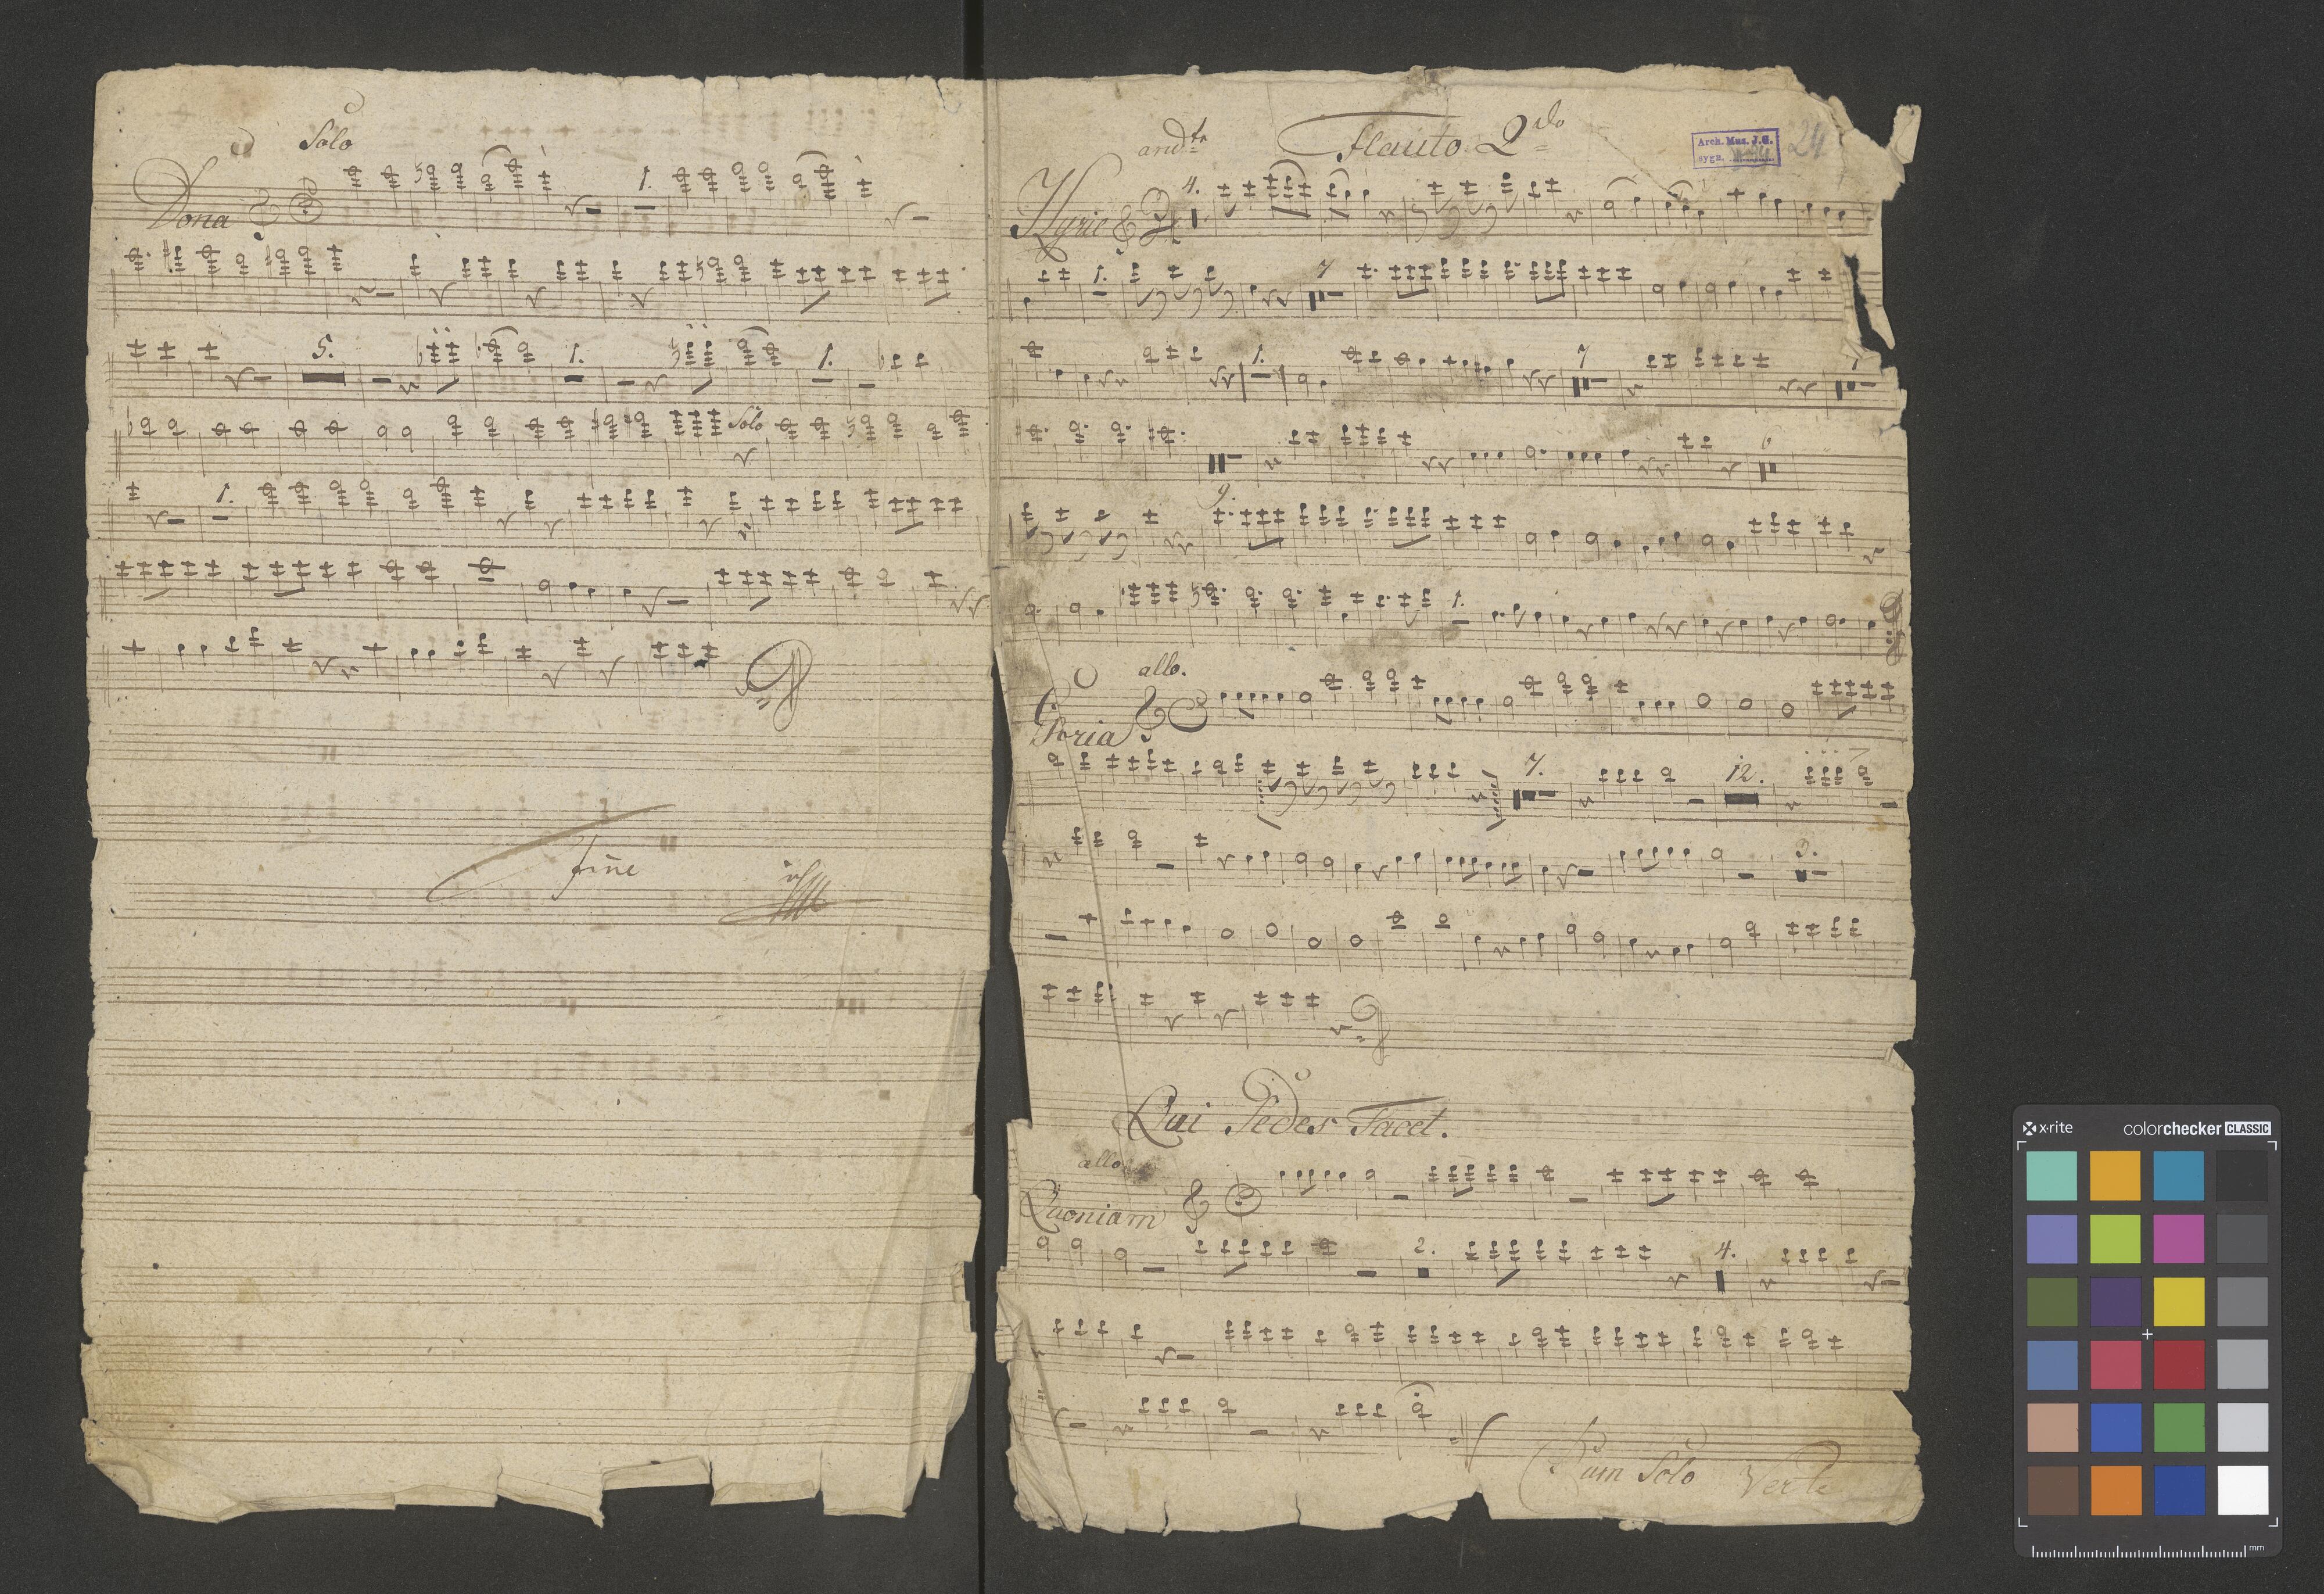 Solo
Dona
1.
5.
1.
1.
Solo
1.
Fine
Flauto 2do
andte
Arch. Mus. J.G.
sygn.
24
Kyrie
4.
1.
7
1.
7
1
6
9.
1.
allo.
Gloria
7.
12.
3.
Qui Sedes Tacet.
allo
Quoniam
2.
4.
Cum Solo Verte
x·rite
colorchecker CLASSIC
mm